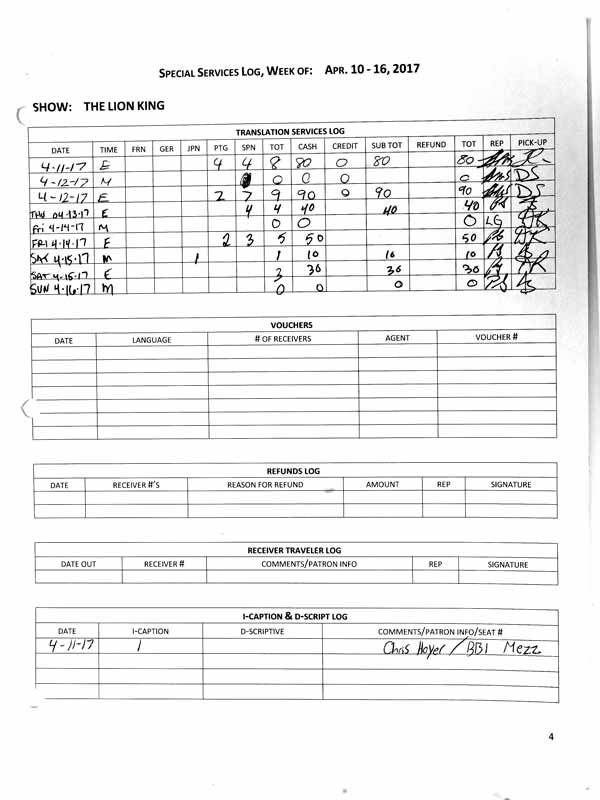 SPECIAL SERVICES LOG, WEEK OF: APR. 10 - 16, 2017
SHOW: THE LION KING
TRANSLATION SERVICES LOG
DATE TIME FRN GER JPN PTG SPN TOT CASH CREDIT SUB TOT REFUND TOT REP PICK-UP
4-11-17 E 4 4 8 80 0 80 80
4-12-17 M 0 0 0 0 DS
4-12-17 E 2 7 9 90 0 90 90 DS
THU 04.13.17 E 4 4 40 40 40
Fri 4-14-17 M 0 0 0 LG
FRI 4.14.17 E 2 3 5 50 50
SAT 4.15.17 M 1 1 10 10 10
SAT 4.15.17 E 3 30 30 30
SUN 4.16.17 M 0 0 0 0
VOUCHERS
DATE LANGUAGE # OF RECEIVERS AGENT VOUCHER #
REFUNDS LOG
DATE RECEIVER #'S REASON FOR REFUND AMOUNT REP SIGNATURE
RECEIVER TRAVELER LOG
DATE OUT RECEIVER # COMMENTS/PATRON INFO REP SIGNATURE
I-CAPTION & D-SCRIPT LOG
DATE I-CAPTION D-SCRIPTIVE COMMENTS/PATRON INFO/SEAT #
4-11-17 1 Chris Hoyer / BB1 Mezz
4